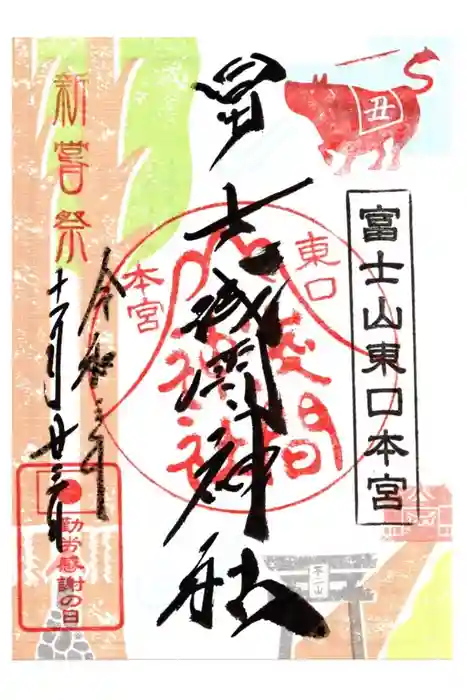 丑
富士山東口本宮
冨士浅間神社
東口
本宮
浅間
神社
新嘗祭
令和三年
十一月廿三日
勤労感謝の日
不二山